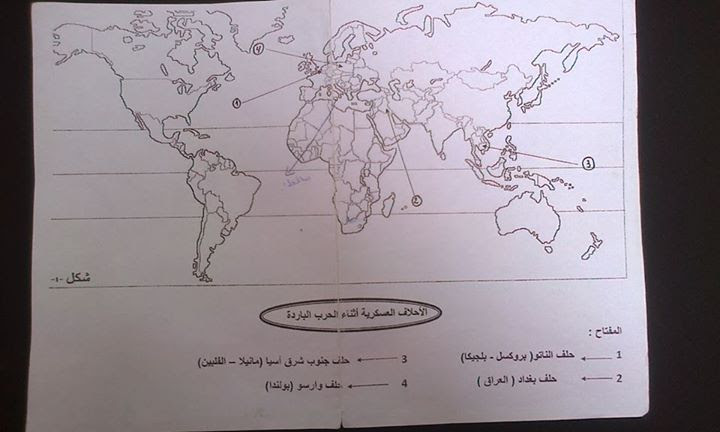 4
1
3
2
شكل -١-
الأحلاف العسكرية أثناء الحرب الباردة
المفتاح :
1 حلف الناتو( بروكسل - بلجيكا)
2 حلف بغداد ( العراق )
3 حلف جنوب شرق أسيا (مانيلا – الفلبين)
4 حلف وارسو (بولندا)